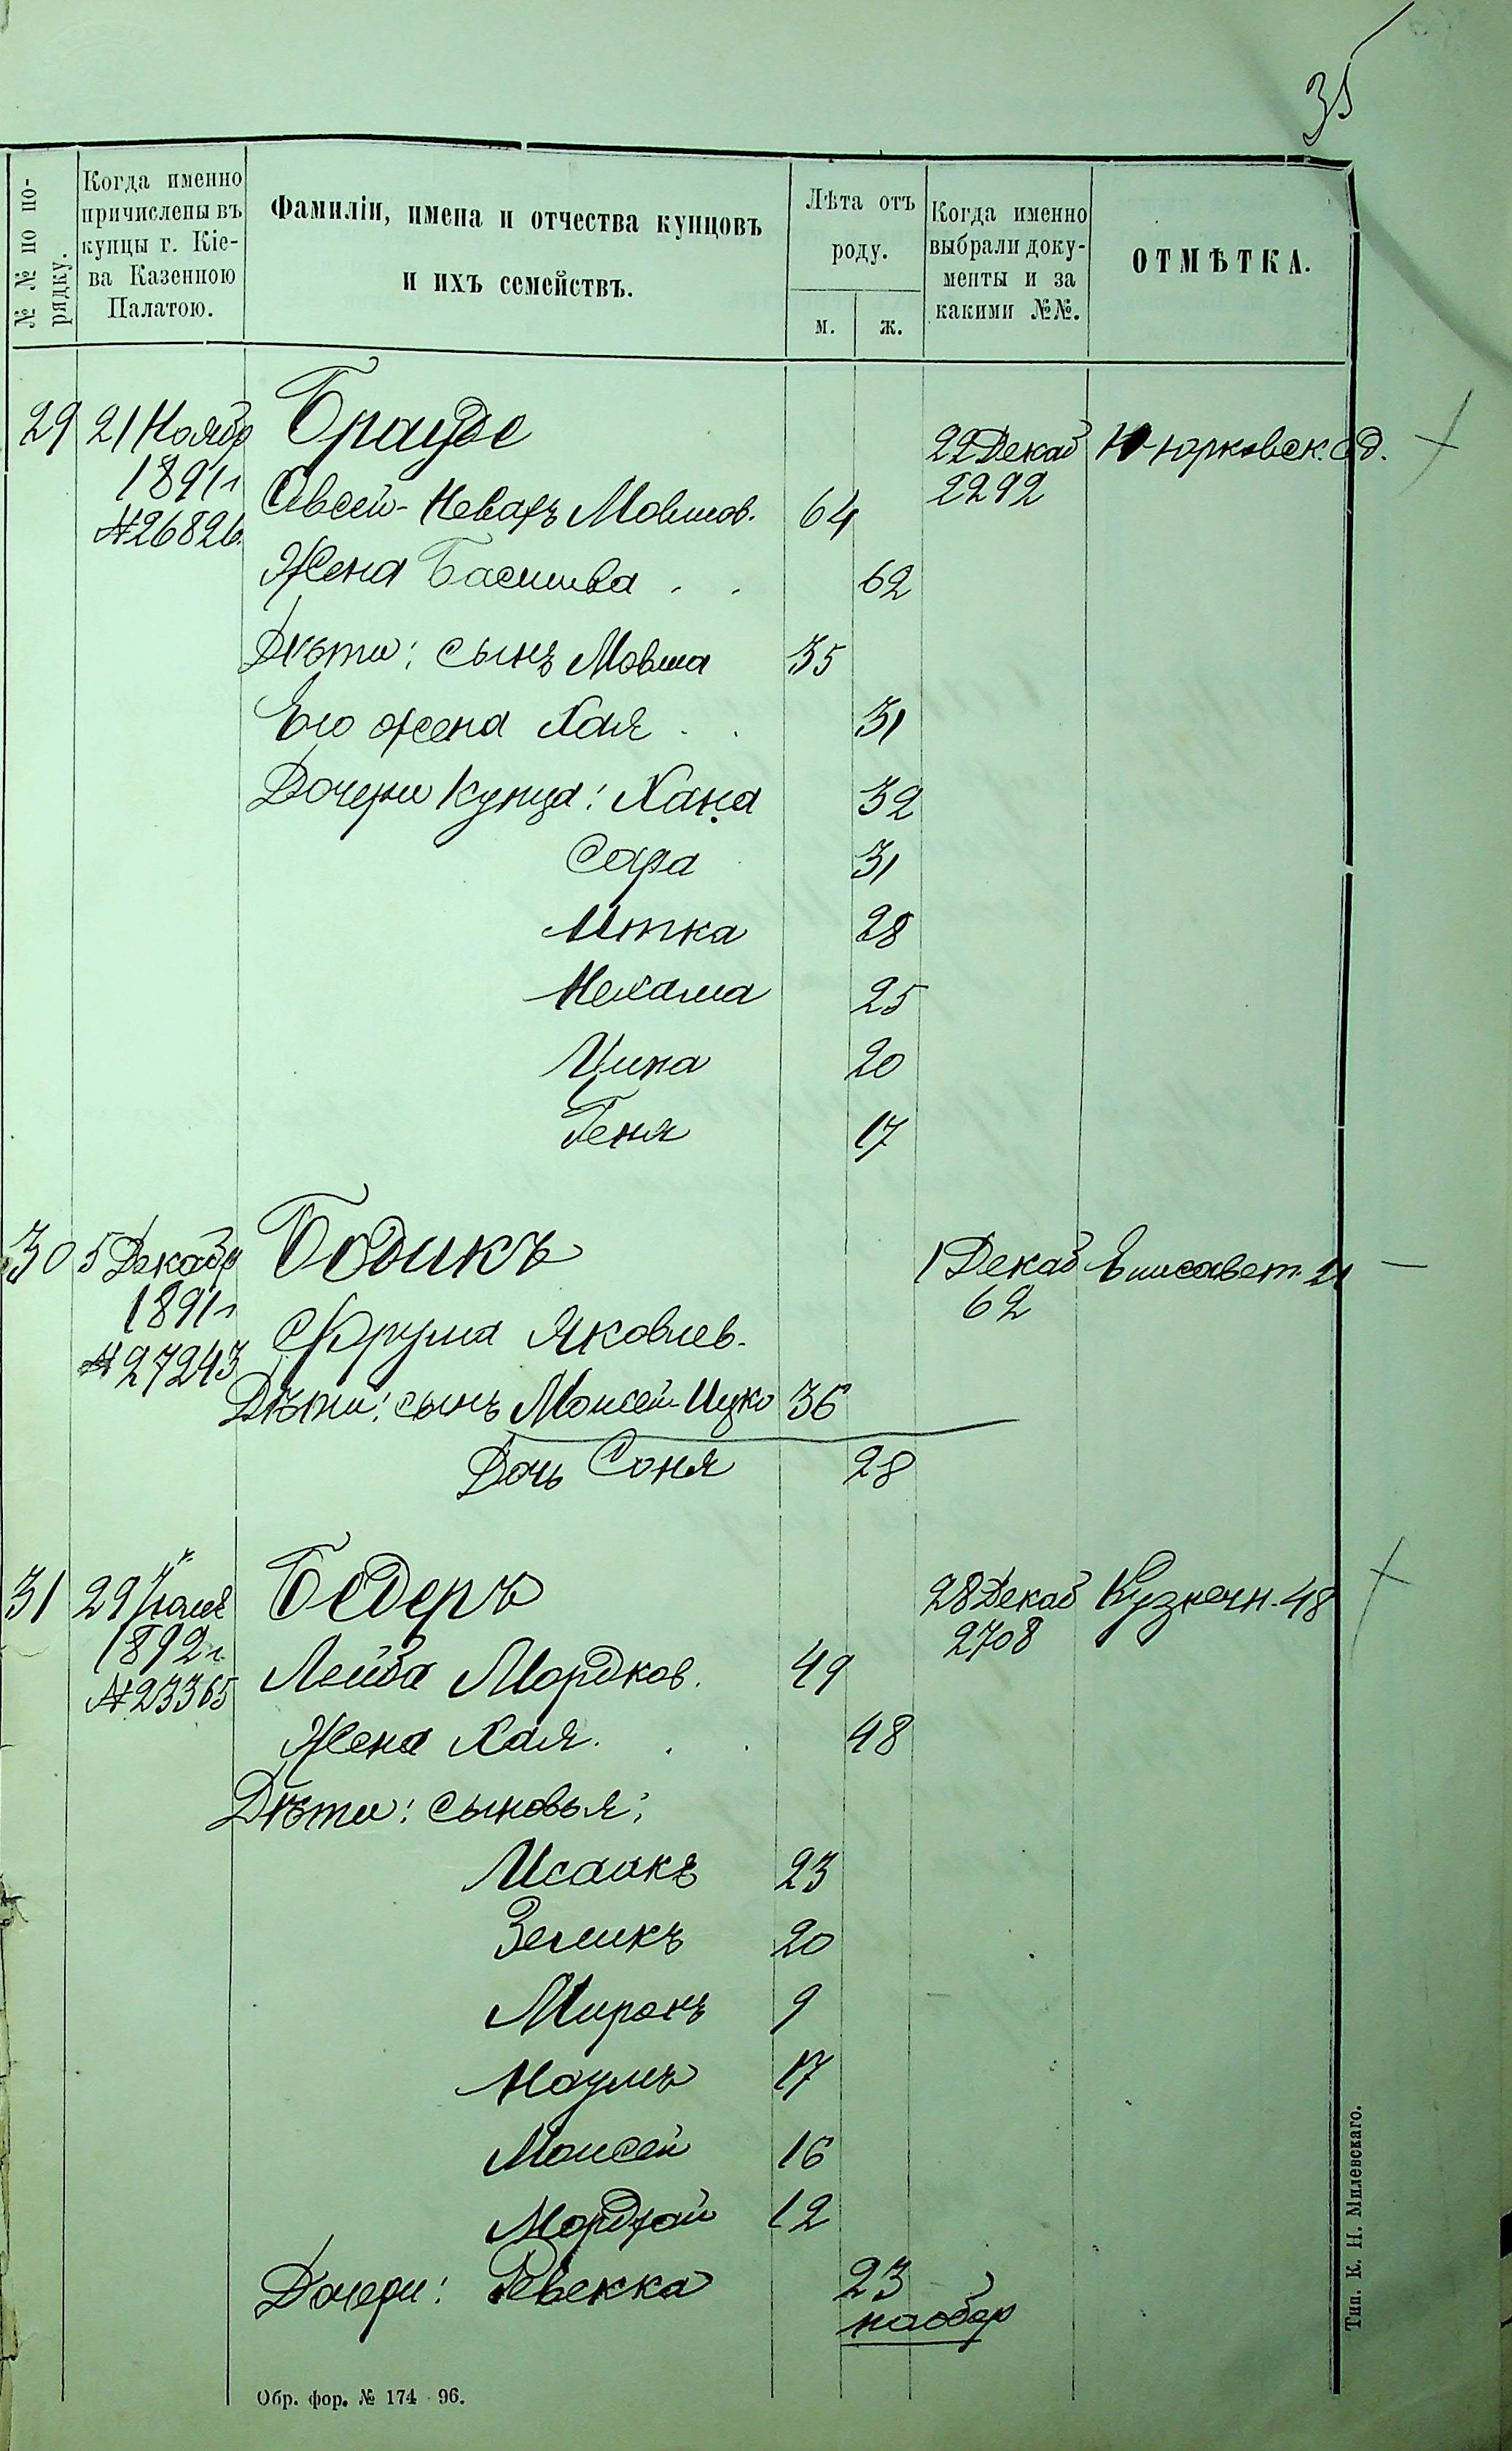 35
№ № по по-
рядку.
Когда именно
причислены въ
купцы г. Кіе-
ва Казенною
Палатою.
Фамиліи, имена и отчества купцовъ
и ихъ семействъ.
Лѣта отъ
роду.
м. ж.
Когда именно
выбрали доку-
менты и за
какими №№.
ОТМѢТКА.
29 21 Ноябр Брауде 22 Декаб Юрковск.
1891 г 2292
№ 26826 Овсей- Мовшов. 64
Жена Басшива . . 62
Дѣти: сынъ Мовша 35
Его жена Хая . . 31
Дочери купца: Хана 32
Сара 31
Итка 28
Нехама 25
Ципа 20
Геня 17
30 5 Декабр Бодикъ 1 Декаб Елисавет. 21
1891 г 62
№ 27243 Фрума Яковлев.
Дѣти: сынъ Моисей-Ицко 36
Дочь Соня 28
31 29 Бедеръ 28 Декаб Кузнечн. 48
1892 г. 2708
№ 23365 Лейба Мордков. 49
Жена Хая . . . 48
Дѣти: сыновья:
Исаакъ 23
Зеликъ 20
Миронъ 9
Наумъ 17
Моисей 16
Мордхай 12
Дочери: Ревекка 23
наобор
Обр. фор. № 174 96.
Тип. К. Н. Милевскаго.